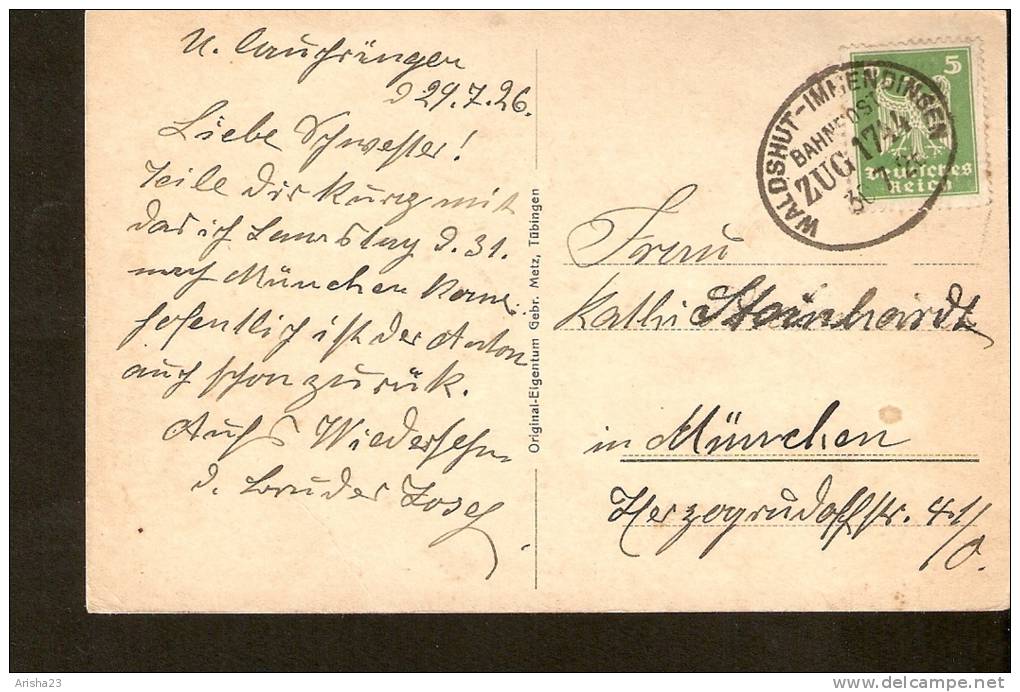 U. Lauchringen
d 29.7.26.
Liebe Schwester!
Teile dir kurz mit
das ich Samstag d. 31.
nach München kome.
hofentlich ist der Anton
auch schon zurük.
Aufs Wiedersehn
d. Bruder Josef
Original-Eigentum Gebr. Metz, Tübingen
5
Deutsches
Reich
WALDSHUT-IMMENDINGEN
BAHNPOST
ZUG 1744
30 7 26
Frau
Kathi Steinhardt
in München
Herzogrudolfstr. 41/0.
Arisha23
delcampe.net